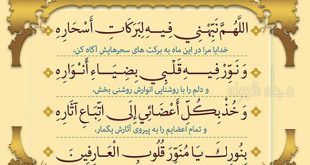 اَللّهُمَّ نَبِّهْنی فیهِ لِبَرَکاتِ اَسْحارِهِ
خدایا مرا در این ماه به برکت های سحرهایش آگاه کن،
وَ نَوِّرْ فیهِ قَلْبی بِضِیاءِ اَنْوارِهِ
و دلم را با روشنایی انوارش روشنی بخش،
وَ خُذْ بِکُلِّ اَعْضائی اِلَی اتِّباعِ آثارِهِ
و تمام اعضایم را به پیروی آثارش بگمار،
بِنُورِکَ یا مُنَوِّرَ قُلُوبِ الْعارِفینَ